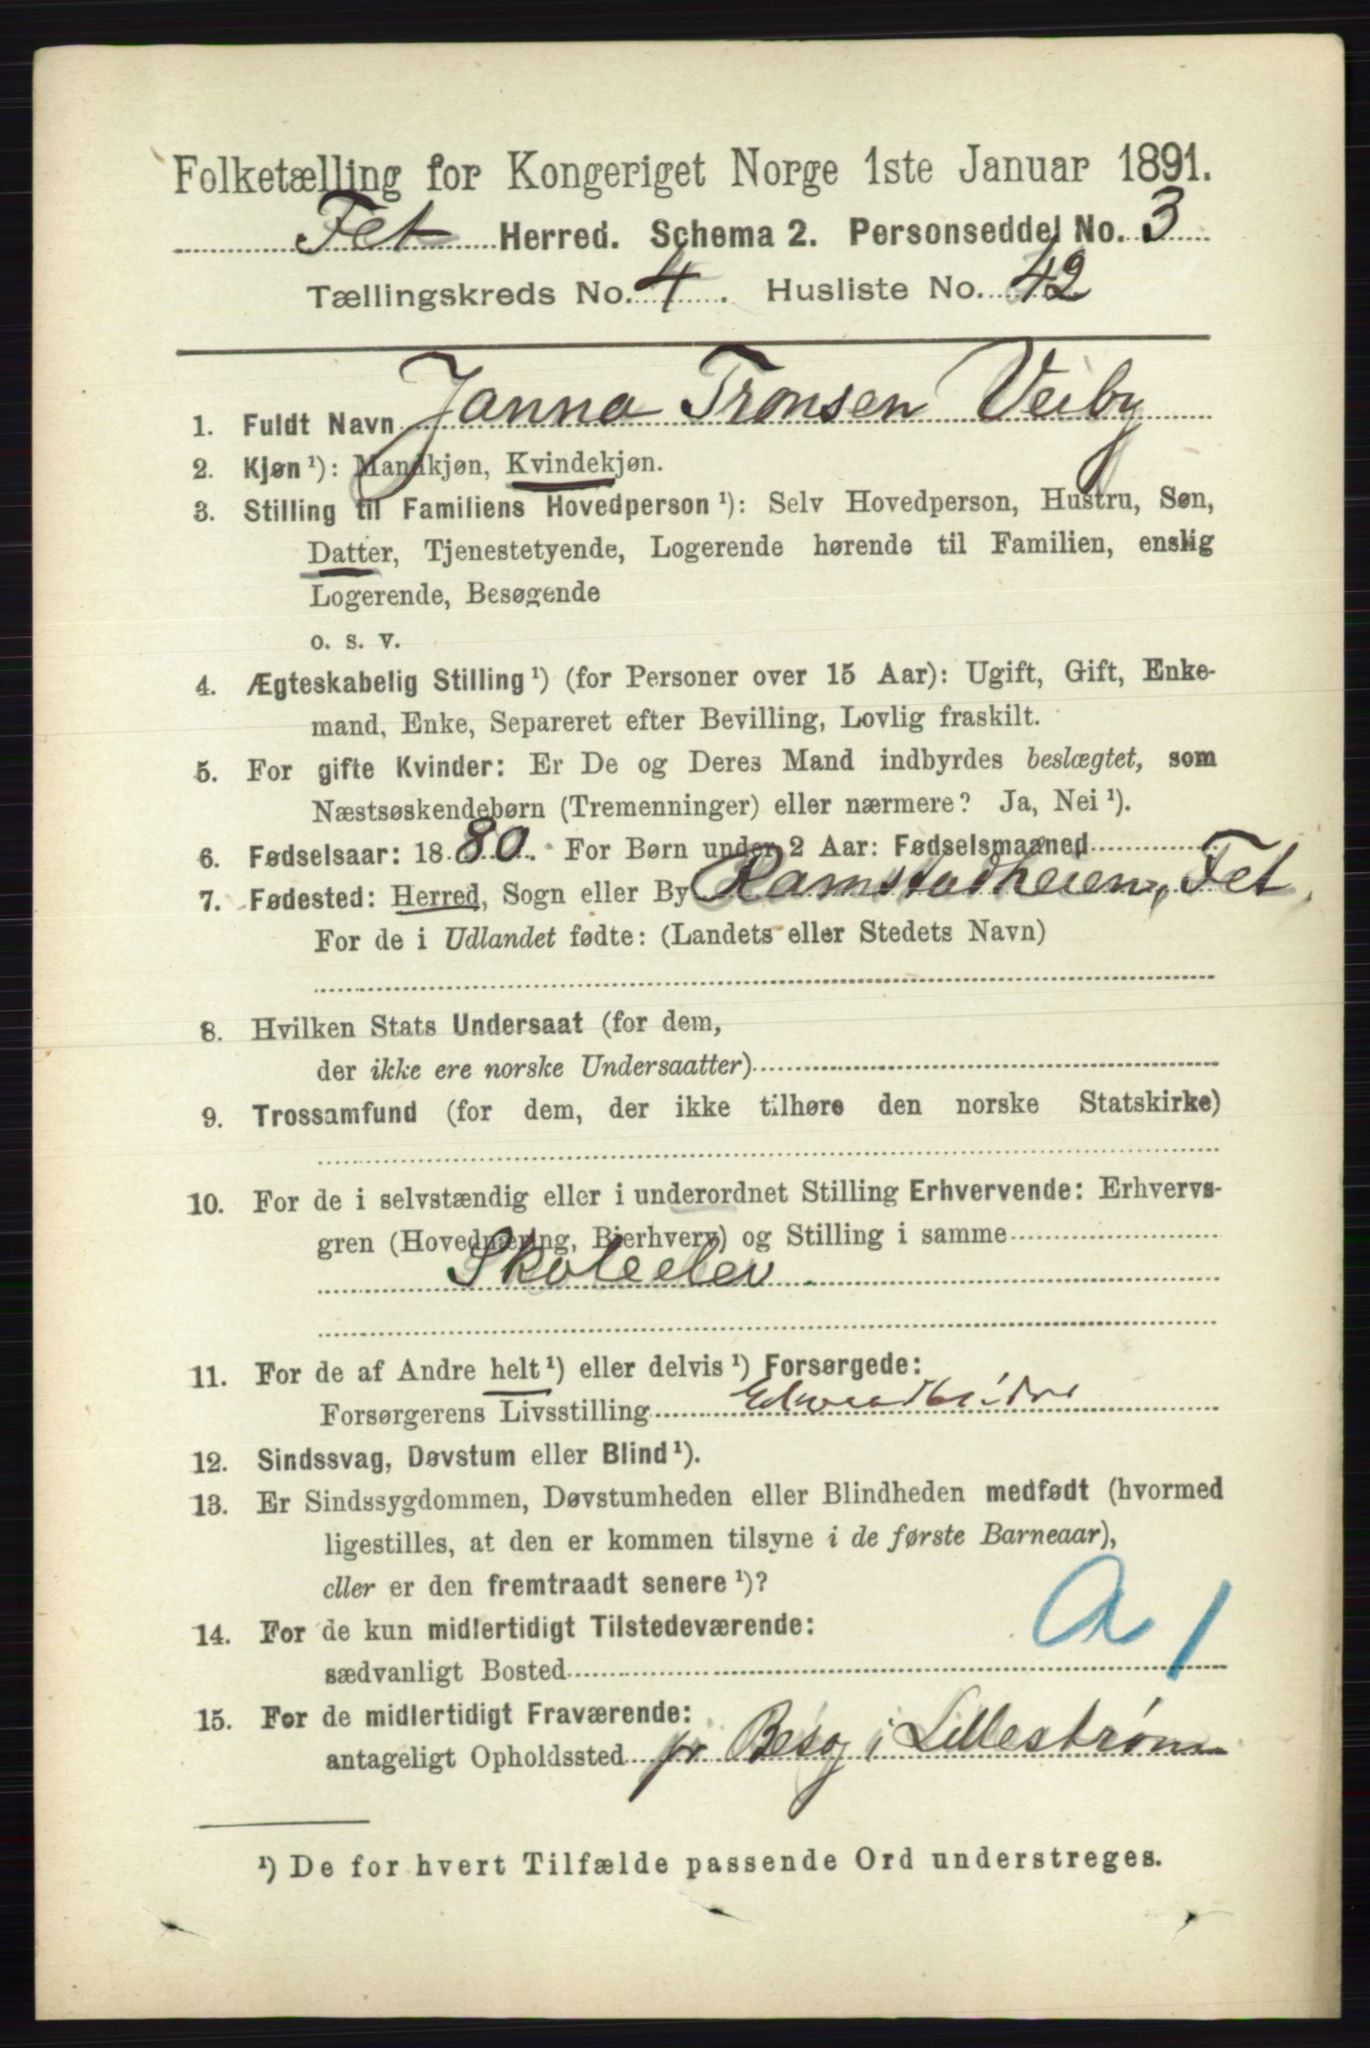 Folketælling for Kongeriget Norge 1ste Januar 1891.
Fet Herred. Schema 2. Personseddel No. 3
Tællingskreds No. 4. Husliste No. 42
1. Fuldt Navn Janna Tronsen Veiby
2. Kjøn ¹): Mandkjøn, Kvindekjøn.
3. Stilling til Familiens Hovedperson ¹): Selv Hovedperson, Hustru, Søn,
Datter, Tjenestetyende, Logerende hørende til Familien, enslig
Logerende, Besøgende
o. s. v.
4. Ægteskabelig Stilling ¹) (for Personer over 15 Aar): Ugift, Gift, Enke-
mand, Enke, Separeret efter Bevilling, Lovlig fraskilt.
5. For gifte Kvinder: Er De og Deres Mand indbyrdes beslægtet, som
Næstsøskendebørn (Tremenninger) eller nærmere? Ja, Nei ¹).
6. Fødselsaar: 1880. For Børn under 2 Aar: Fødselsmaaned
7. Fødested: Herred, Sogn eller By Ramstadheien, Fet.
For de i Udlandet fødte: (Landets eller Stedets Navn)
8. Hvilken Stats Undersaat (for dem,
der ikke ere norske Undersaatter)
9. Trossamfund (for dem, der ikke tilhøre den norske Statskirke)
10. For de i selvstændig eller i underordnet Stilling Erhvervende: Erhvervs-
gren (Hovednæring, Bierhverv) og Stilling i samme
Skoleelev.
11. For de af Andre helt ¹) eller delvis ¹) Forsørgede:
Forsørgerens Livsstilling
12. Sindssvag, Døvstum eller Blind ¹).
13. Er Sindssygdommen, Døvstumheden eller Blindheden medfødt (hvormed
ligestilles, at den er kommen tilsyne i de første Barneaar),
eller er den fremtraadt senere ¹)?
14. For de kun midlertidigt Tilstedeværende:
sædvanligt Bosted
a 1
15. For de midlertidigt Fraværende:
antageligt Opholdssted pr Besøg i Lillestrøm
¹) De for hvert Tilfælde passende Ord understreges.